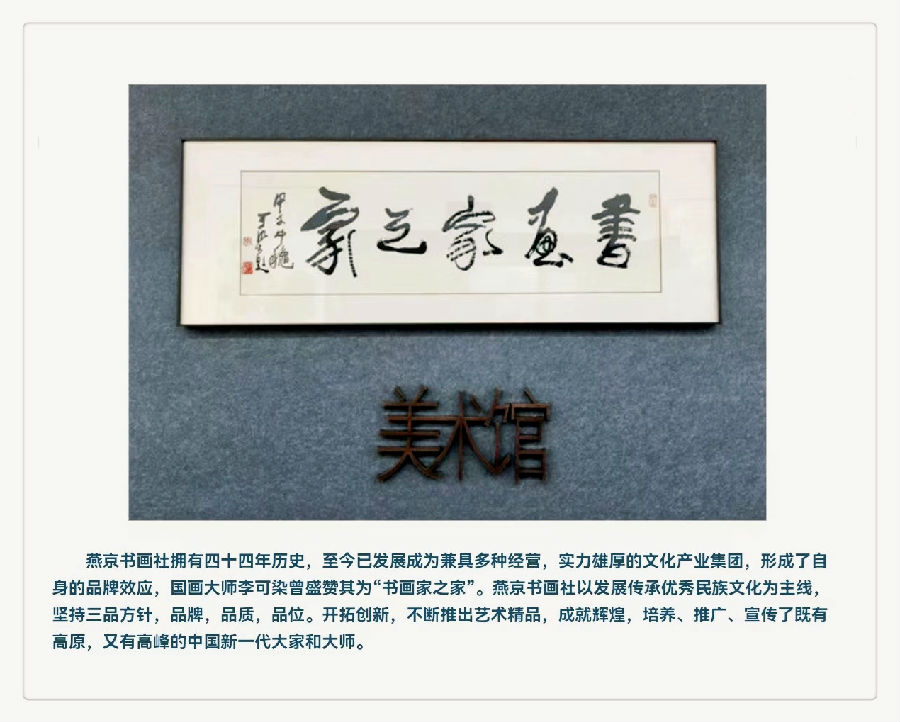 書畫家之家
甲子中穐
美术馆
燕京书画社拥有四十四年历史，至今已发展成为兼具多种经营，实力雄厚的文化产业集团，形成了自
身的品牌效应，国画大师李可染曾盛赞其为“书画家之家”。燕京书画社以发展传承优秀民族文化为主线，
坚持三品方针，品牌，品质，品位。开拓创新，不断推出艺术精品，成就辉煌，培养、推广、宣传了既有
高原，又有高峰的中国新一代大家和大师。